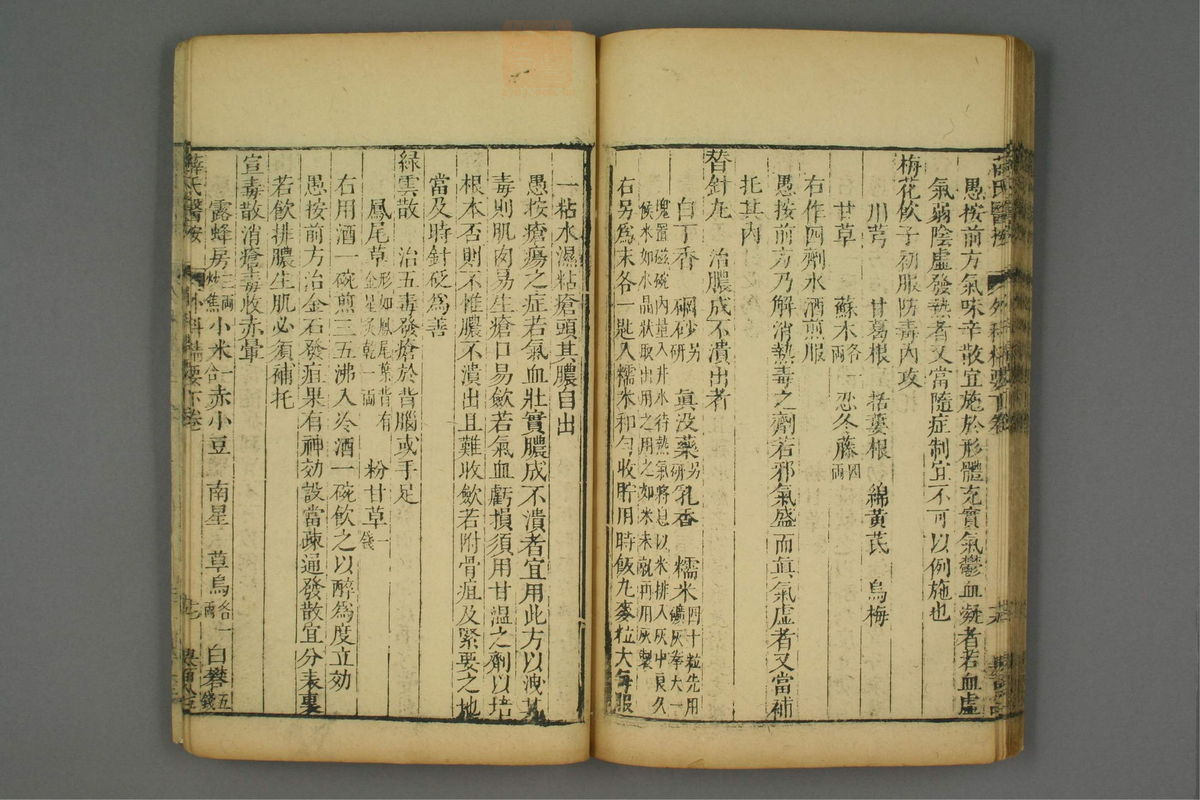 薛氏醫按 外科精要下卷
愚按前方氣味辛散宜施於形體充實氣鬱血凝者若血虛
氣弱陰虛發熱者又當隨症制宜不可以例施也
梅花飲子初服防毒內攻
川芎 甘葛根 括蔞根 綿黃芪 烏梅
甘草 蘇木各一兩 忍冬藤四兩
右作四劑水酒煎服
愚按前方乃解消熱毒之劑若邪氣盛而眞氣虛者又當補
托其內
替針丸 治膿成不潰出者
白丁香 硇砂另研 眞没藥另研 乳香 糯米四十粒先用礦灰拳大一
塊置磁碗內量入井水待熱氣將息以米排入灰中良久
候米如水晶狀取出用之如米未就再用灰製
右另爲末各一匙入糯米和勻收貯用時飯丸麥粒大每服
一粘水濕粘瘡頭其膿自出
愚按瘡瘍之症若氣血壯實膿成不潰者宜用此方以洩其
毒則肌肉易生瘡口易斂若氣血虧損須用甘温之劑以培
根本否則不惟膿不潰出且難收斂若附骨疽及緊要之地
當及時針砭爲善
綠雲散 治五毒發瘡於背腦或手足
鳳尾草形如鳳尾葉背有金星炙乾一兩 粉甘草一錢
右用酒一碗煎三五沸入冷酒一碗飲之以醉爲度立効
愚按前方治金石發疽果有神効設當疎通發散宜分表裏
若飲排膿生肌必須補托
宣毒散消瘡毒收赤暈
露蜂房三兩炒焦 小米一合 赤小豆 南星 草烏各一兩 白礬五錢
薛氏醫按 外科精要下卷